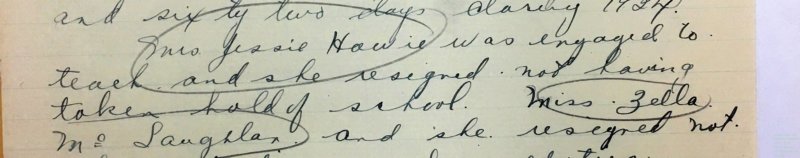 and sixty two days during 1924.
Mrs Jessie Howie was engaged to
teach and she resigned not having
taken hold of school. Miss. Zella
Mc Laughlan and she resigned not.